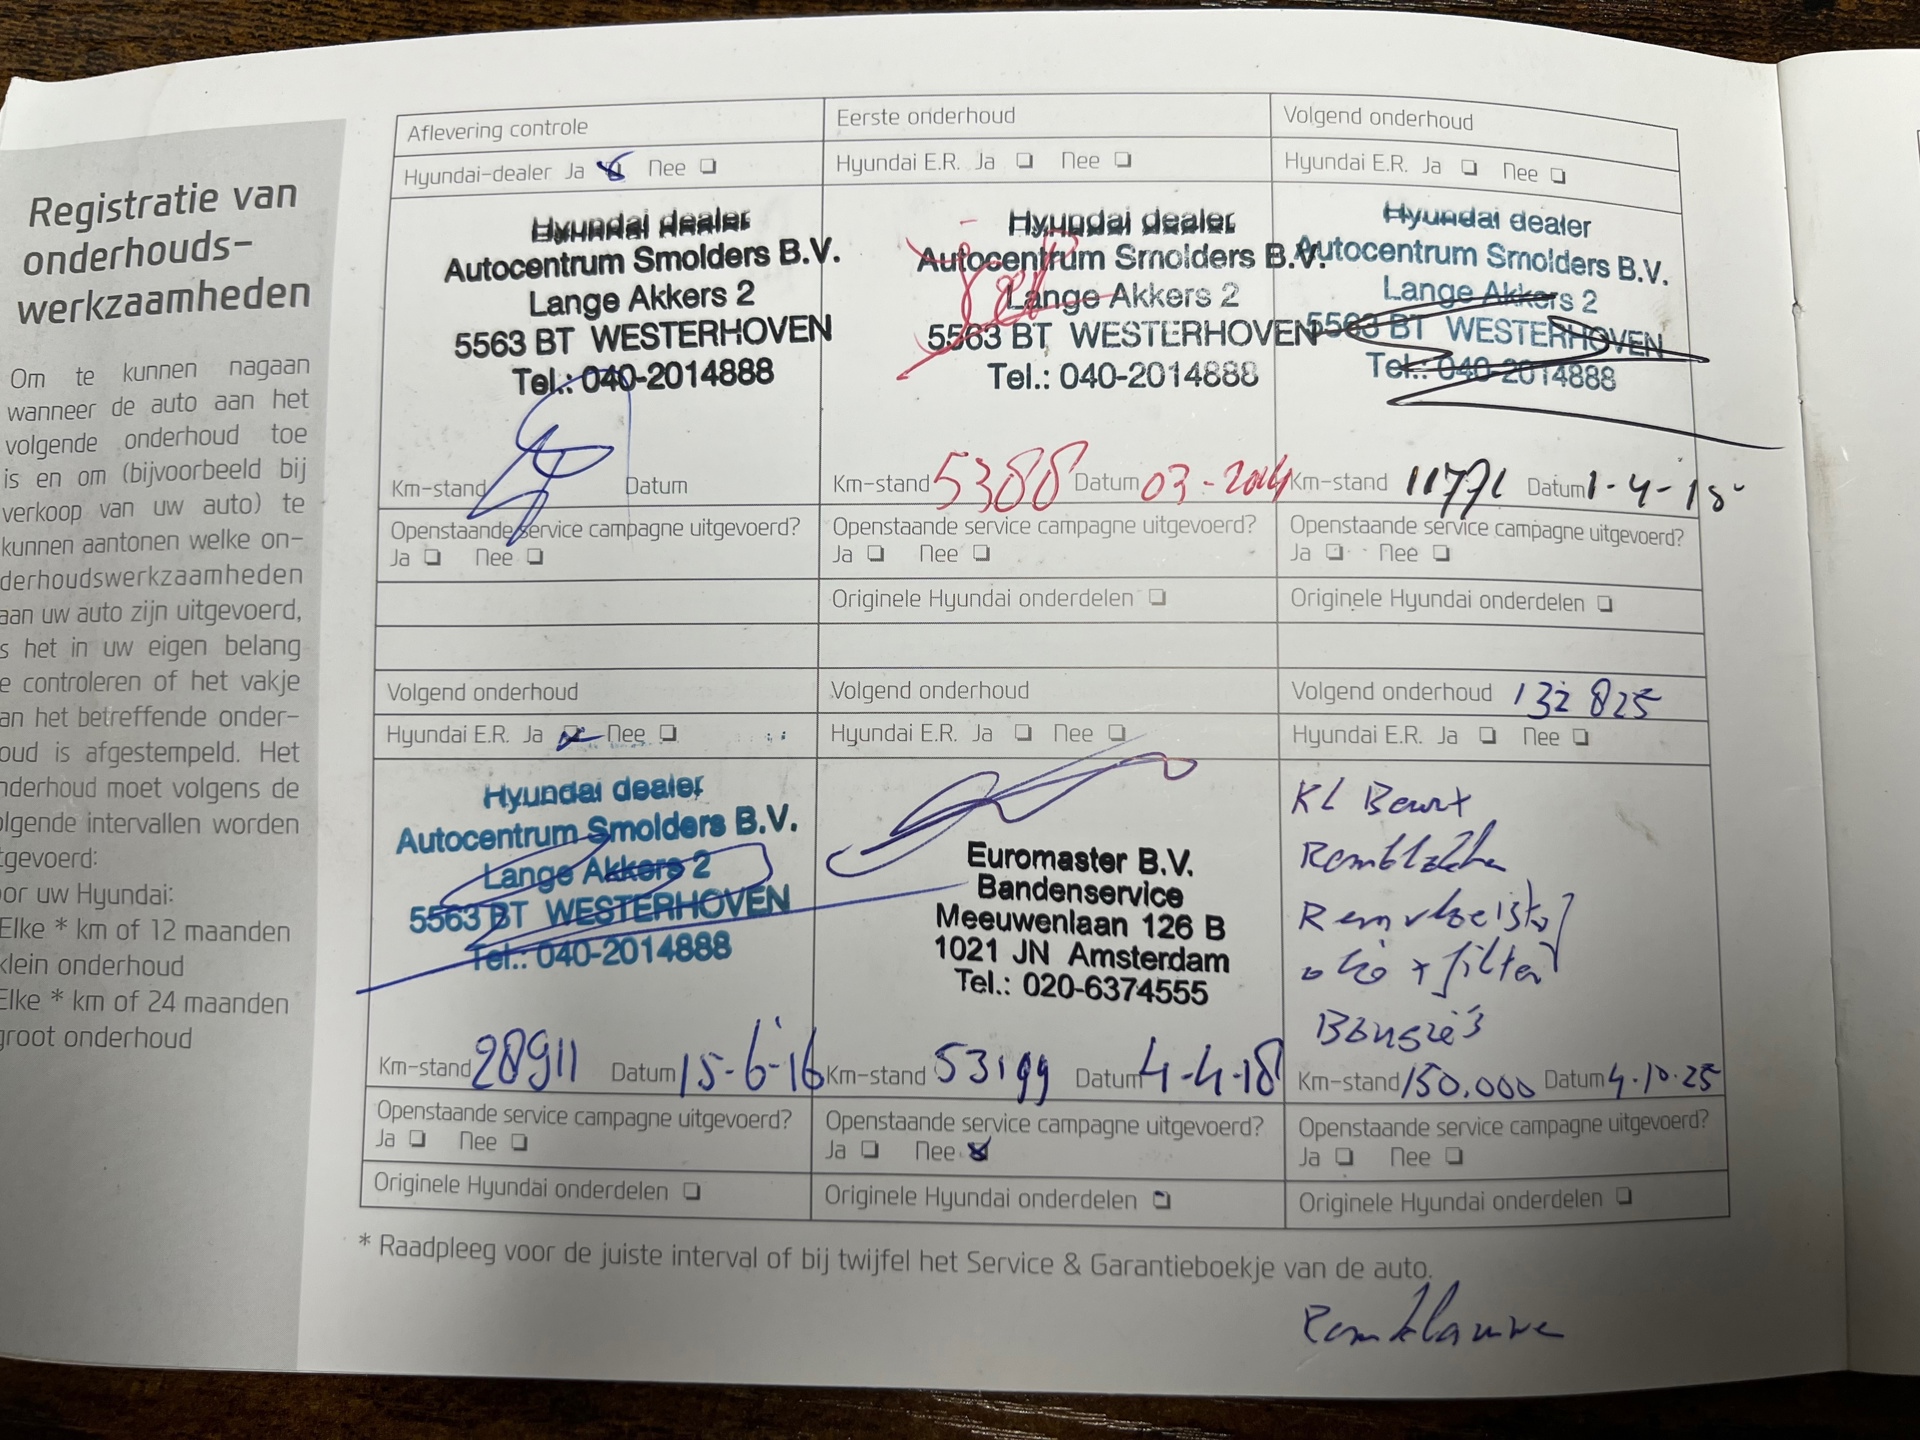 Registratie van
onderhouds-
werkzaamheden
Om te kunnen nagaan
wanneer de auto aan het
volgende onderhoud toe
is en om (bijvoorbeeld bij
verkoop van uw auto) te
kunnen aantonen welke on-
derhoudswerkzaamheden
aan uw auto zijn uitgevoerd,
s het in uw eigen belang
e controleren of het vakje
an het betreffende onder-
oud is afgestempeld. Het
nderhoud moet volgens de
olgende intervallen worden
tgevoerd:
oor uw Hyundai:
Elke * km of 12 maanden
klein onderhoud
Elke * km of 24 maanden
groot onderhoud
Aflevering controle
Hyundai-dealer Ja Nee
Hyundai dealer
Autocentrum Smolders B.V.
Lange Akkers 2
5563 BT WESTERHOVEN
Tel.: 040-2014888
Km-stand Datum
Openstaande service campagne uitgevoerd?
Ja Nee
Eerste onderhoud
Hyundai E.R. Ja Nee
Hyundai dealer
Autocentrum Smolders B.V.
Lange Akkers 2
5563 BT WESTERHOVEN
Tel.: 040-2014888
Km-stand 5388 Datum 03-2014
Openstaande service campagne uitgevoerd?
Ja Nee
Originele Hyundai onderdelen
Volgend onderhoud
Hyundai E.R. Ja Nee
Hyundai dealer
Autocentrum Smolders B.V.
Lange Akkers 2
5563 BT WESTERHOVEN
Tel.: 040-2014888
Km-stand Datum 1-4-15
Openstaande service campagne uitgevoerd?
Ja Nee
Originele Hyundai onderdelen
Volgend onderhoud
Hyundai E.R. Ja Nee
Hyundai dealer
Autocentrum Smolders B.V.
Lange Akkers 2
5563 BT WESTERHOVEN
Tel.: 040-2014888
Km-stand 28911 Datum 15-6-16
Openstaande service campagne uitgevoerd?
Ja Nee
Originele Hyundai onderdelen
Volgend onderhoud
Hyundai E.R. Ja Nee
Euromaster B.V.
Bandenservice
Meeuwenlaan 126 B
1021 JN Amsterdam
Tel.: 020-6374555
Km-stand 53199 Datum 4-4-18
Openstaande service campagne uitgevoerd?
Ja Nee
Originele Hyundai onderdelen
Volgend onderhoud 132 825
Hyundai E.R. Ja Nee
KL Beurt
Remblokken
Remvloeistof
olio + filter
Bougie's
Km-stand 150.000 Datum 4.10.25
Openstaande service campagne uitgevoerd?
Ja Nee
Originele Hyundai onderdelen
* Raadpleeg voor de juiste interval of bij twijfel het Service & Garantieboekje van de auto.
Remklauwe